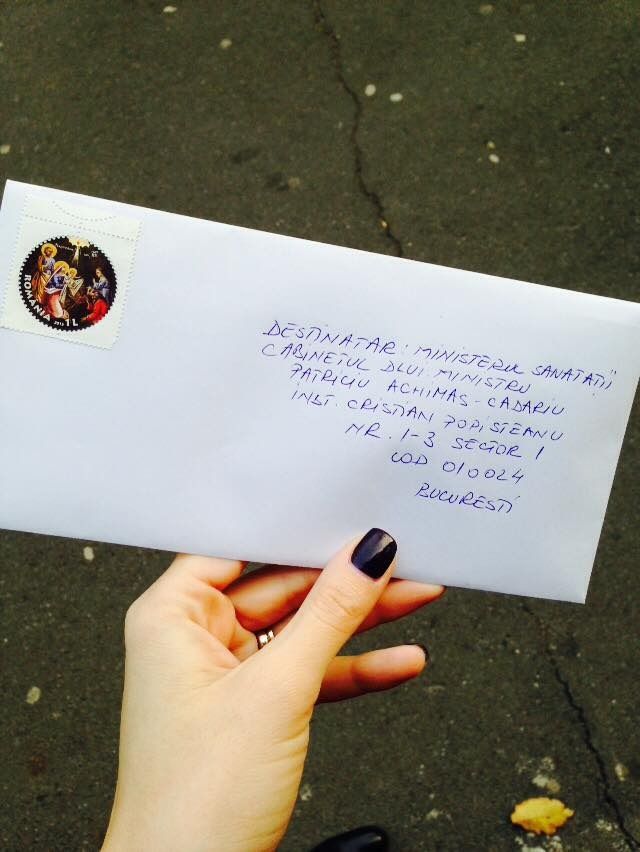 ROMANIA 1L
DESTINATAR: MINISTERUL SANATATII
CABINETUL DLUI. MINISTRU
PATRICIU ACHIMAS-CADARIU
INBT. CRISTIAN POPISTEANU
NR. 1-3 SECTOR 1
COD 010024
BUCURESTI